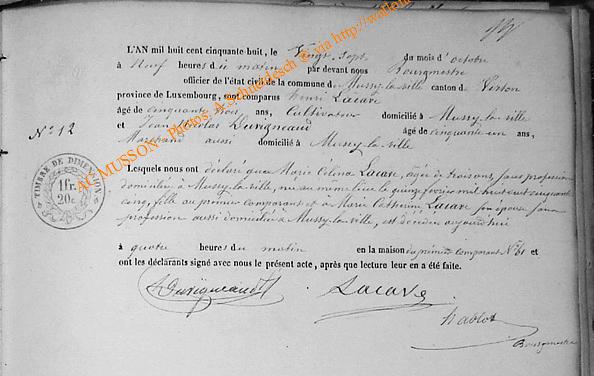 L'AN mil huit cent cinquante-huit, le Vingt-Sept du mois d'octobre
à Neuf heures du matin par devant nous Bourgmestre
officier de l'état civil de la commune de Mussy-la-ville canton de Virton
province de Luxembourg, sont comparus henri Lacave
âgé de cinquante trois ans, Cultivateur domicilié à Mussy-la-ville
et Jean Nicolas Duvigneaud âgé de cinquante un ans,
Marchand aussi domicilié à Mussy-la-ville
N° 12
TIMBRE DE DIMENSION
1fr.
20c.
AC MUSSON - Photos. A.Schneidesch © via http://w
Lesquels nous ont déclaré que Marie Célina Lacave, agée de trois ans, sans profession
domiciliée à Mussy-la-ville, née au même lieu le quinze février mil huit cent cinquante
cinq, fille au premier comparant et à Marie Catherine Lacave son épouse sans
profession aussi domiciliée à Mussy-la-ville, est décédée aujourd'hui
à quatre heures du matin en la maison du premier comparant N° 61 et
ont les déclarants signé avec nous le présent acte, après que lecture leur en a été faite.
Duvigneaud Lacave
Nablot
Bourgmestre